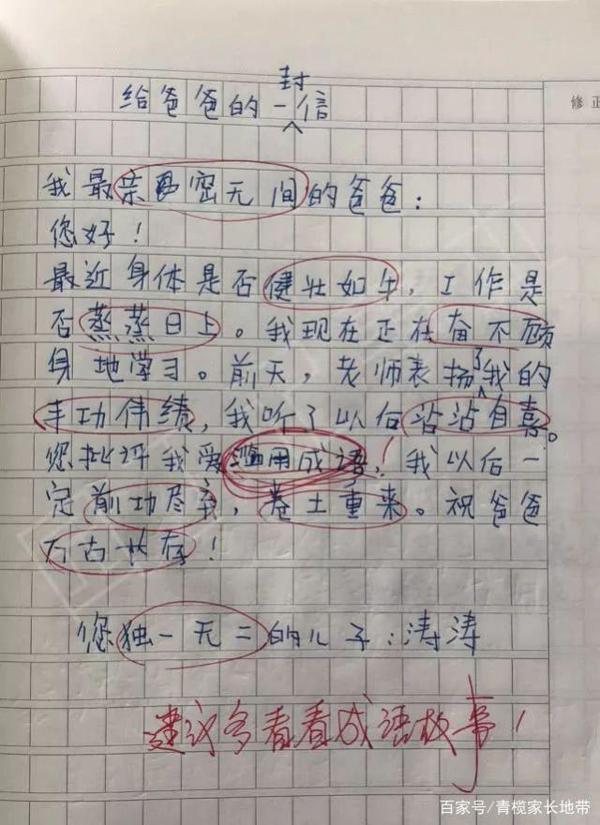 给爸爸的一封信
修正
我最亲密无间的爸爸：
您好！
最近身体是否健壮如牛，工作是
否蒸蒸日上。我现在正在奋不顾
身地学习。前天，老师表扬了我的
丰功伟绩，我听了以后沾沾自喜。
您批评我爱滥用成语！我以后一
定前功尽弃，卷土重来。祝爸爸
万古长存！
您独一无二的儿子：涛涛
建议多看看成语故事！
百家号/青榄家长地带